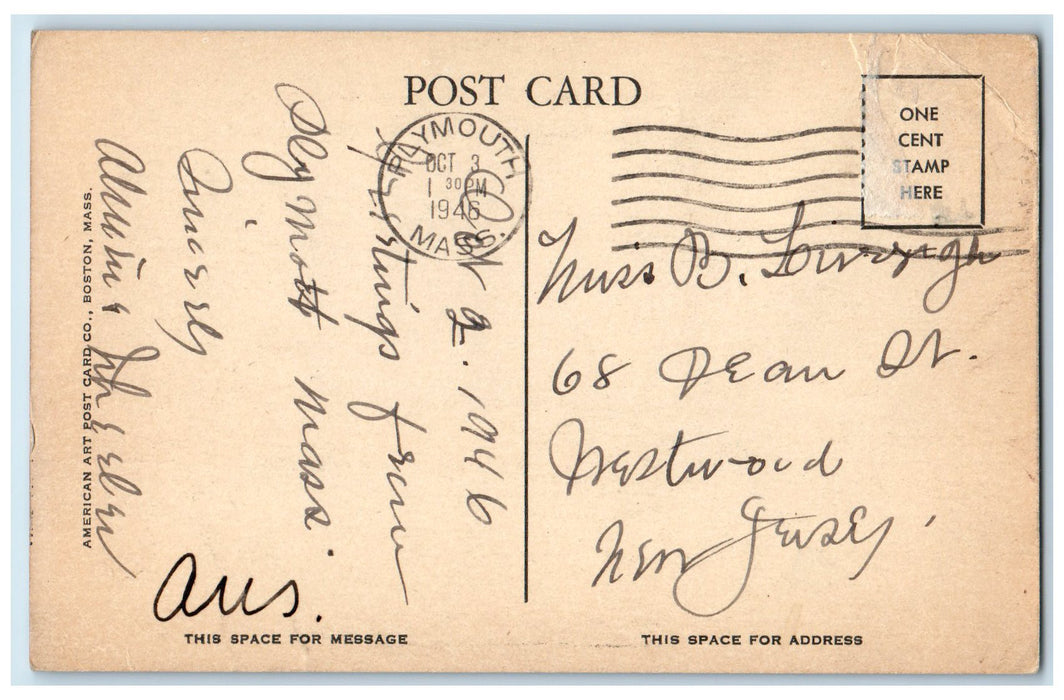 POST CARD
PLYMOUTH
OCT 3
1 30 PM
1946
MASS.
ONE
CENT
STAMP
HERE
Oct 2. 1946
Greetings from
Plymouth Mass.
Sincerely
Ans.
Miss B.
68 Dean St.
Westwood
New Jersey.
AMERICAN ART POST CARD CO., BOSTON, MASS.
THIS SPACE FOR MESSAGE
THIS SPACE FOR ADDRESS